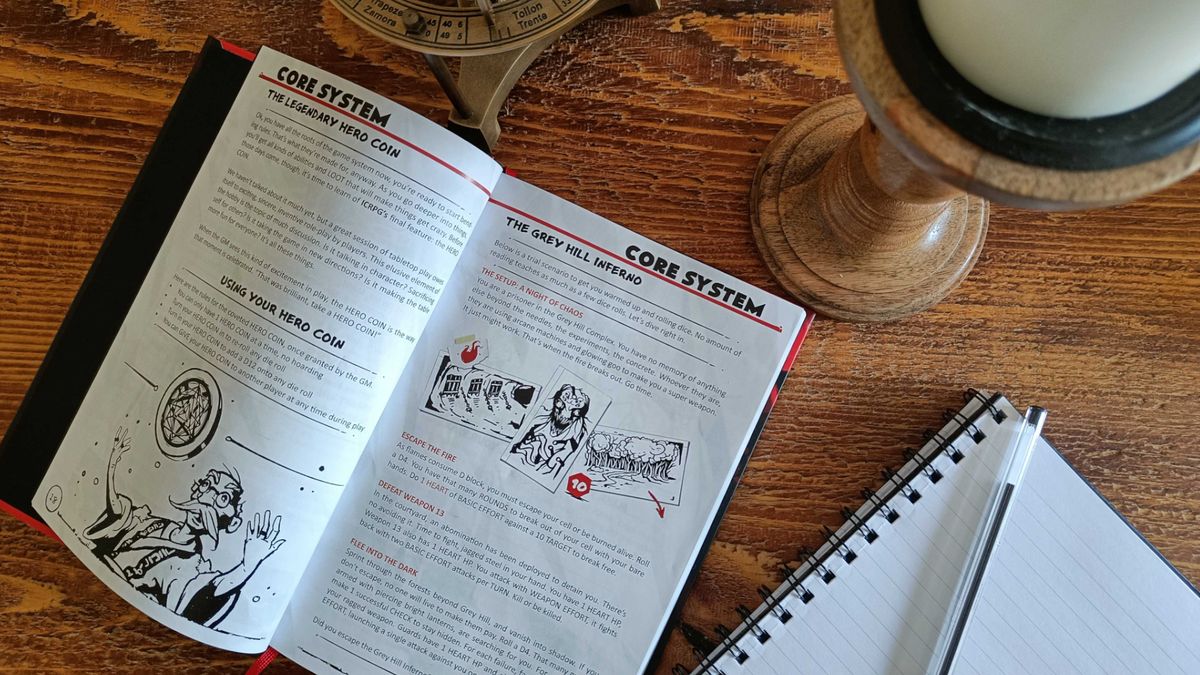 Trapeze
Zamora
45 40 6
49 5
Tollon
Trente
CORE SYSTEM
THE LEGENDARY HERO COIN
Ok, you have all the roots of the game system now, you're ready to start bend
ing rules. That's what they're made for, anyway. As you go deeper into things,
you'll get all kinds of abilities and LOOT that will make things get crazy. Before
those days come, though, it's time to learn of ICRPG's final feature: the HERO
COIN.
We haven't talked about it much yet, but a great session of tabletop play owes
itself to exciting, sincere, inventive role-play by players. This elusive element of
the hobby is the topic of much discussion. Is it talking in character? Sacrificing
self for others? Is it taking the game in new directions? Is it making the table
more fun for everyone? It's all these things.
When the GM sees this kind of excitement in play, the HERO COIN is the way
that moment is celebrated. "That was brilliant, take a HERO COIN!"
USING YOUR HERO COIN
Here are the rules for the coveted HERO COIN, once granted by the GM.
You can only have 1 HERO COIN at a time, no hoarding
Turn in your HERO COIN to re-roll any die roll
Turn your HERO COIN to add a D12 onto any die roll
You can give your HERO COIN to another player at any time during play
18
CORE SYSTEM
THE GREY HILL INFERNO
Below is a trial scenario to get you warmed up and rolling dice. No amount of
reading teaches as much as a few dice rolls. Let's dive right in.
THE SETUP: A NIGHT OF CHAOS
You are a prisoner in the Grey Hill Complex. You have no memory of anything
else beyond the needles, the experiments, the concrete. Whoever they are,
they are using arcane machines and glowing goo to make you a super weapon.
It just might work. That's when the fire breaks out. Go time.
10
ESCAPE THE FIRE
As flames consume D block, you must escape your cell or be burned alive. Roll
a D4. You have that many ROUNDS to break out of your cell with your bare
hands. Do 1 HEART of BASIC EFFORT against a 10 TARGET to break free.
DEFEAT WEAPON 13
In the courtyard, an abomination has been deployed to detain you. There's
no avoiding it. Time to fight, jagged steel in your hand. You have 1 HEART HP,
Weapon 13 also has 1 HEART HP. You attack with WEAPON EFFORT, it fights
back with two BASIC EFFORT attacks per TURN. Kill or be killed.
FLEE INTO THE DARK
Sprint through the forests beyond Grey Hill, and vanish into shadow. If you
don't escape, no one will live to make them pay. Roll a D4. That many
armed with piercing bright lanterns, are searching for you. For
make 1 successful CHECK to stay hidden. For each failure,
your ragged weapon. Guards have 1 HEART HP and
EFFORT, launching a single attack against you on
Did you escape the Grey Hill Inferno